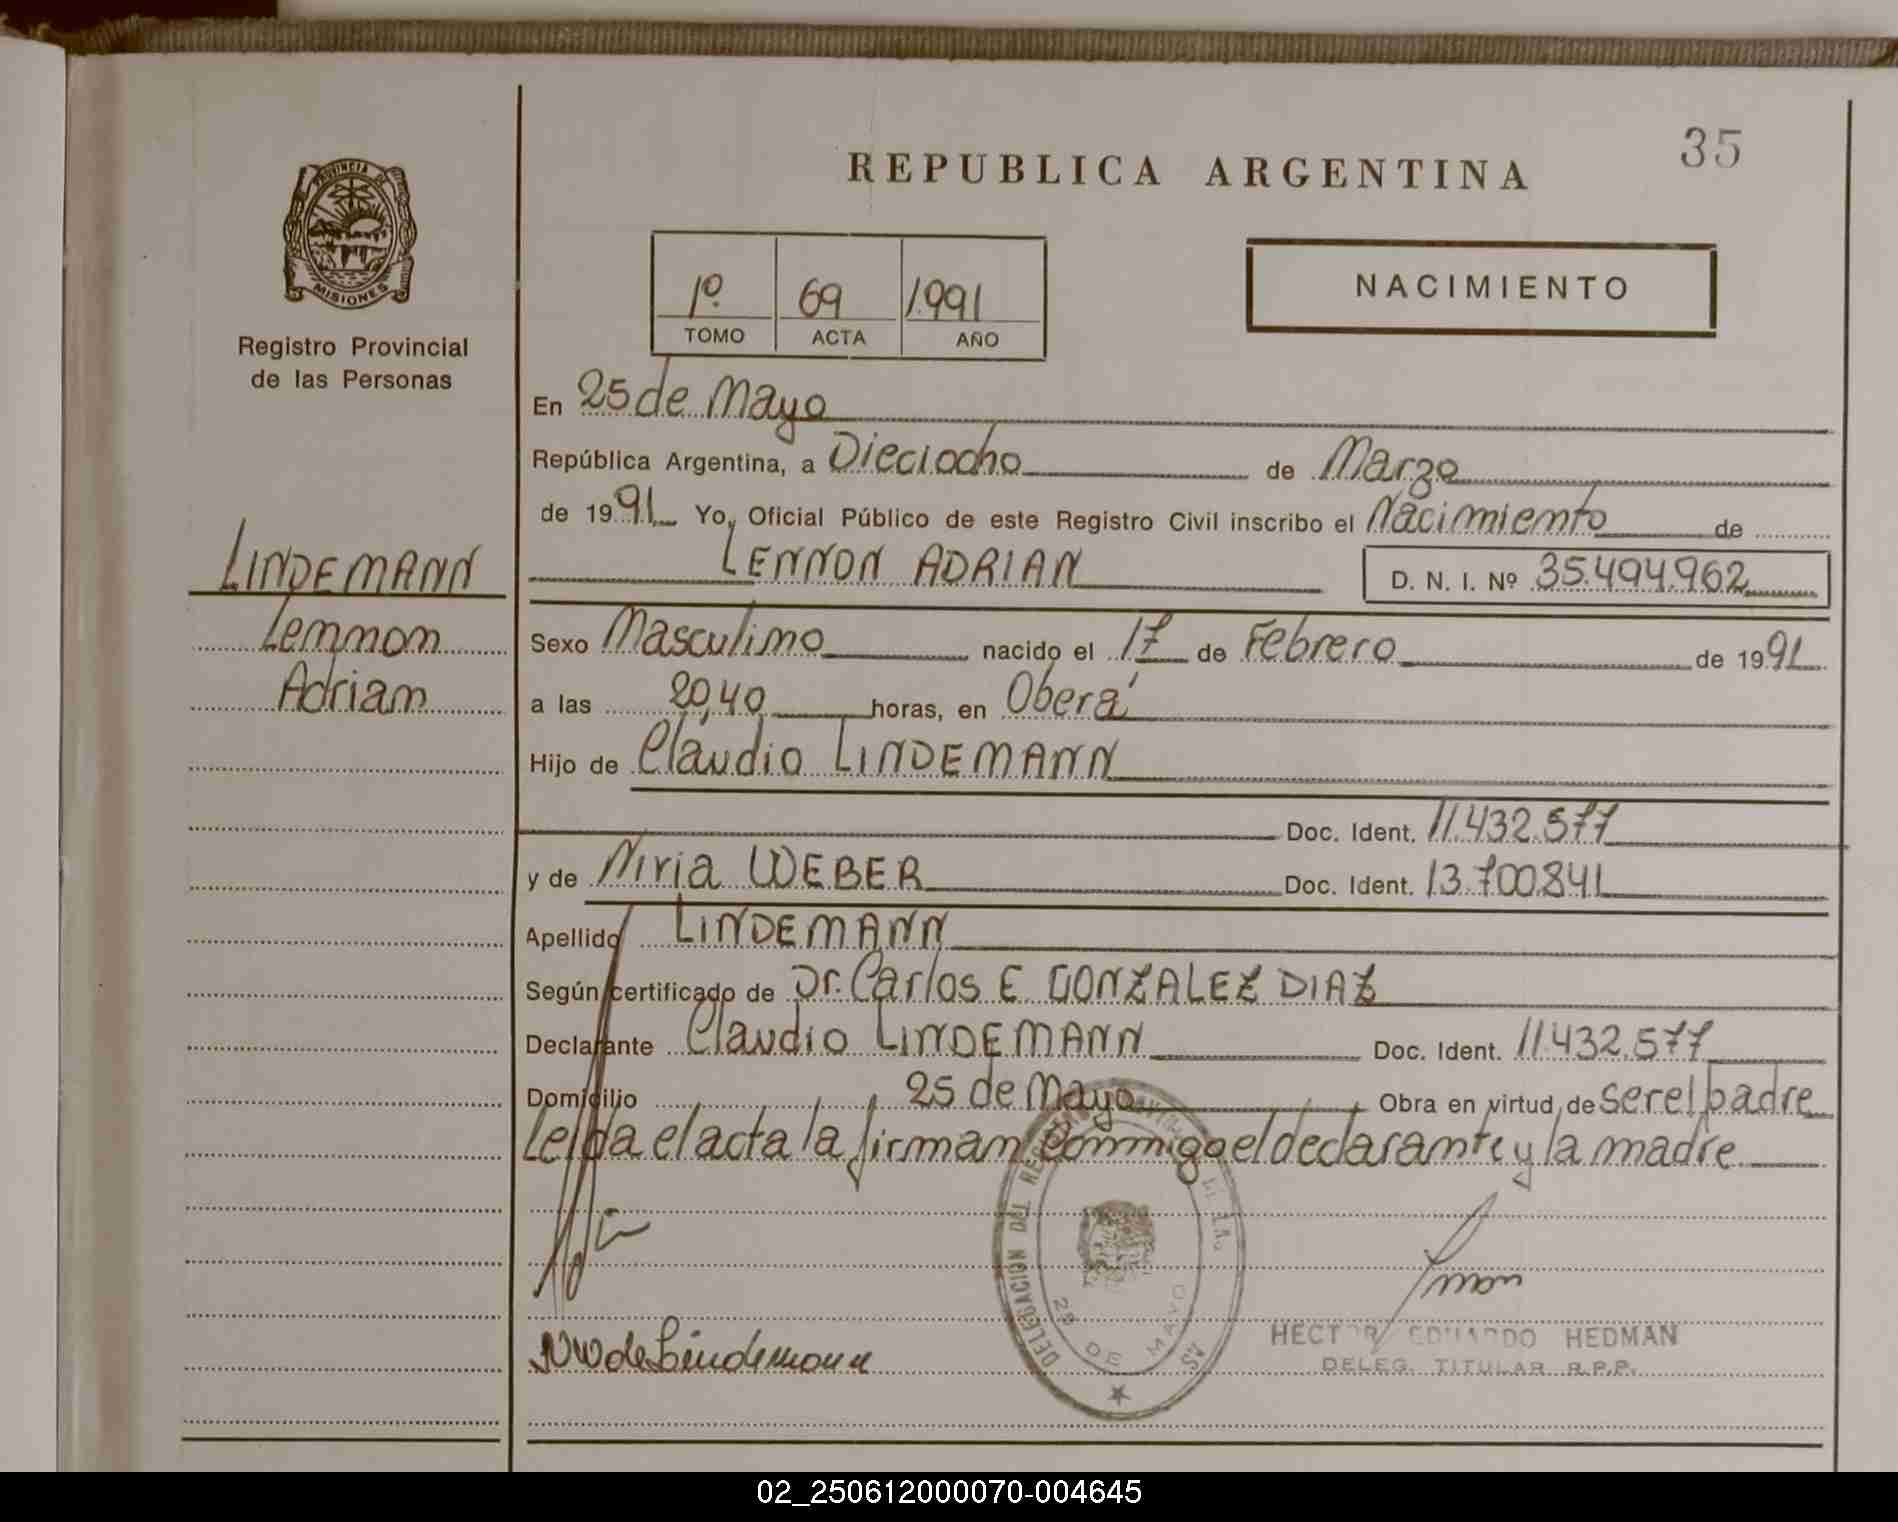 35
REPUBLICA ARGENTINA
PROVINCIA DE
MISIONES
Registro Provincial
de las Personas
1º 69 1.991
TOMO ACTA AÑO
NACIMIENTO
En 25 de Mayo
República Argentina, a Dieciocho de Marzo
de 1991 Yo, Oficial Público de este Registro Civil inscribo el Nacimiento de
LENNON ADRIAN D. N. I. Nº 35.494.962
LINDEMANN
Lennon
Adrian
Sexo Masculino nacido el 17 de Febrero de 1991
a las 20,40 horas, en Oberá
Hijo de Claudio LINDEMANN
Doc. Ident. 11.432.577
y de Niria WEBER Doc. Ident. 13.700.841
Apellido LINDEMANN
Según certificado de Dr. Carlos E GONZALEZ DIAZ
Declarante Claudio LINDEMANN Doc. Ident. 11.432.577
Domicilio 25 de Mayo Obra en virtud de ser el padre
Leída el acta la firman conmigo el declarante y la madre
DELEGACION DEL
25 DE MAYO
NW de Lindemann
HECTOR EDUARDO HEDMAN
DELEG. TITULAR R.P.P.
02_250612000070-004645